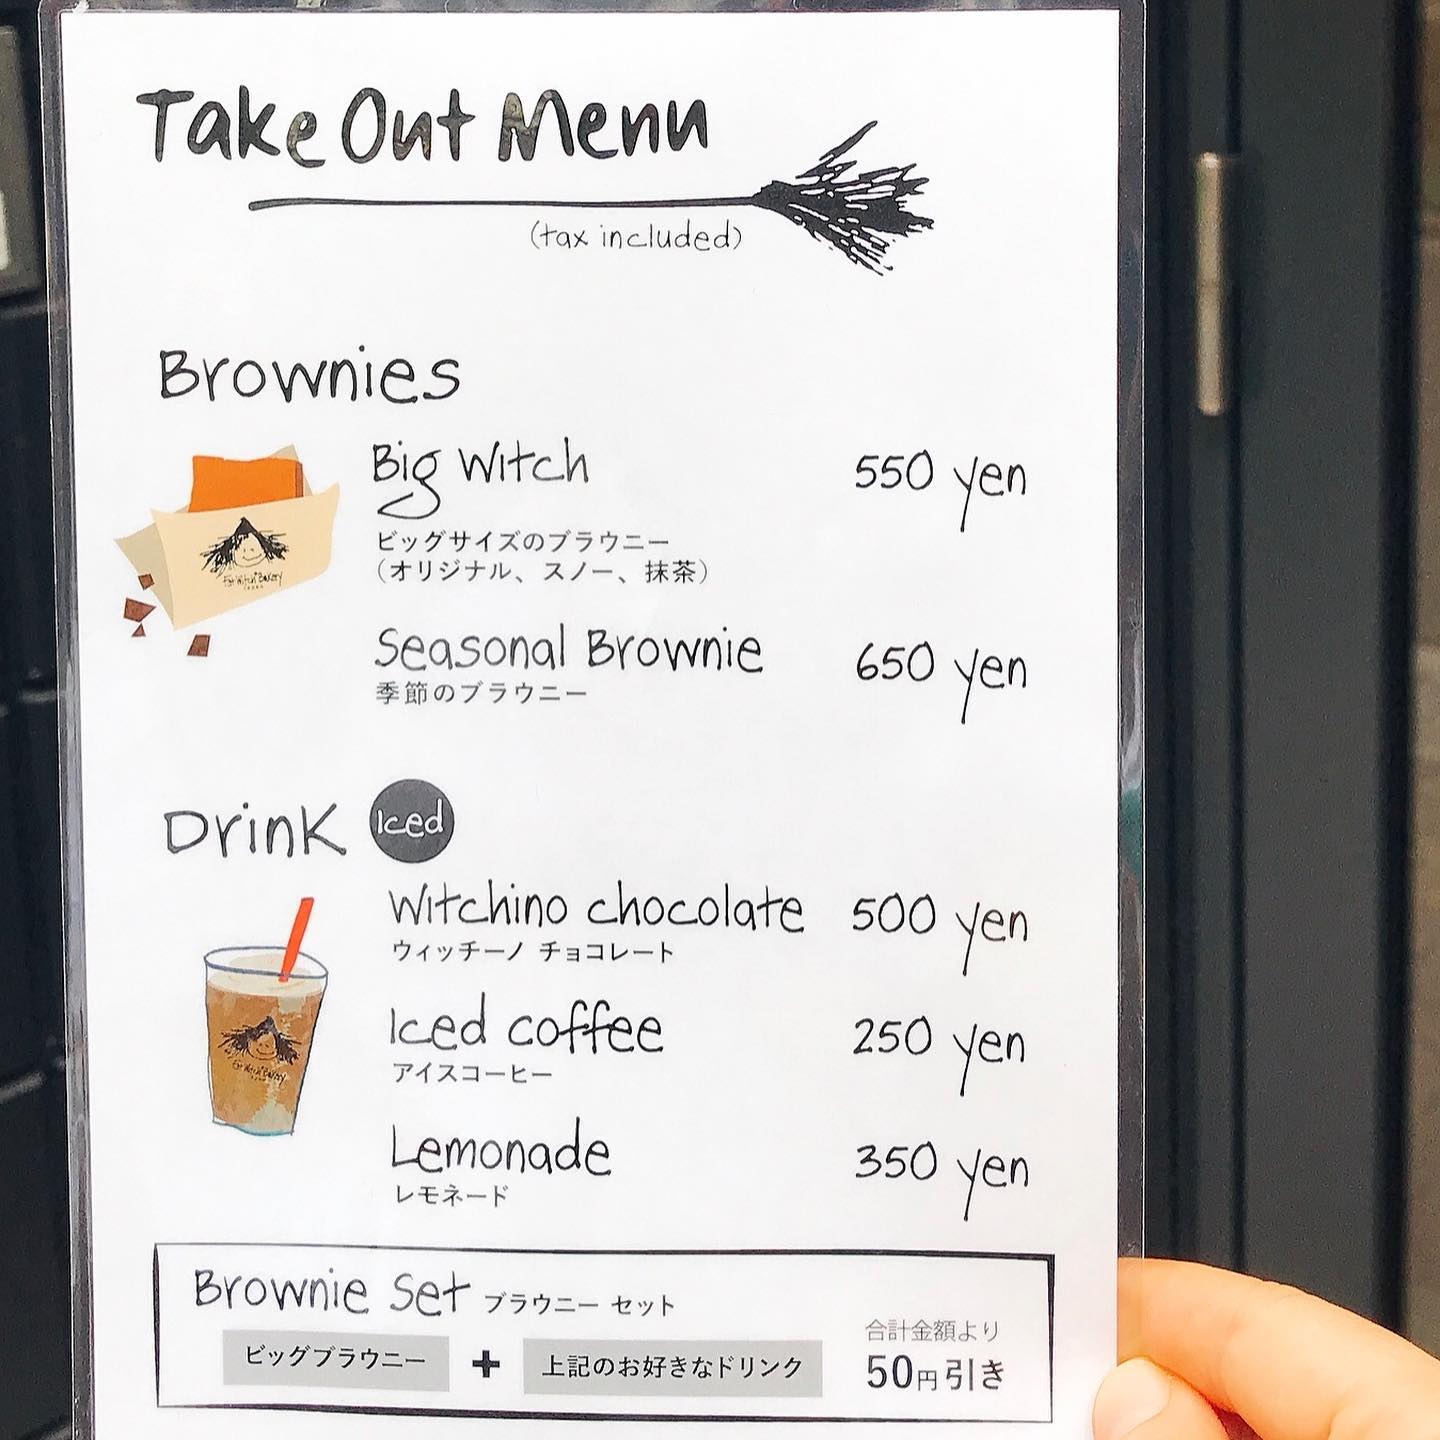 Take Out Menu
(tax included)
Brownies
Big Witch 550 yen
ビッグサイズのブラウニー
(オリジナル、スノー、抹茶)
Fat Witch Bakery
JAPAN
Seasonal Brownie 650 yen
季節のブラウニー
Drink Iced
Witchino chocolate 500 yen
ウィッチーノ チョコレート
Iced coffee 250 yen
アイスコーヒー
Fat Witch Bakery
Lemonade 350 yen
レモネード
Brownie Set ブラウニー セット
ビッグブラウニー + 上記のお好きなドリンク
合計金額より
50円引き